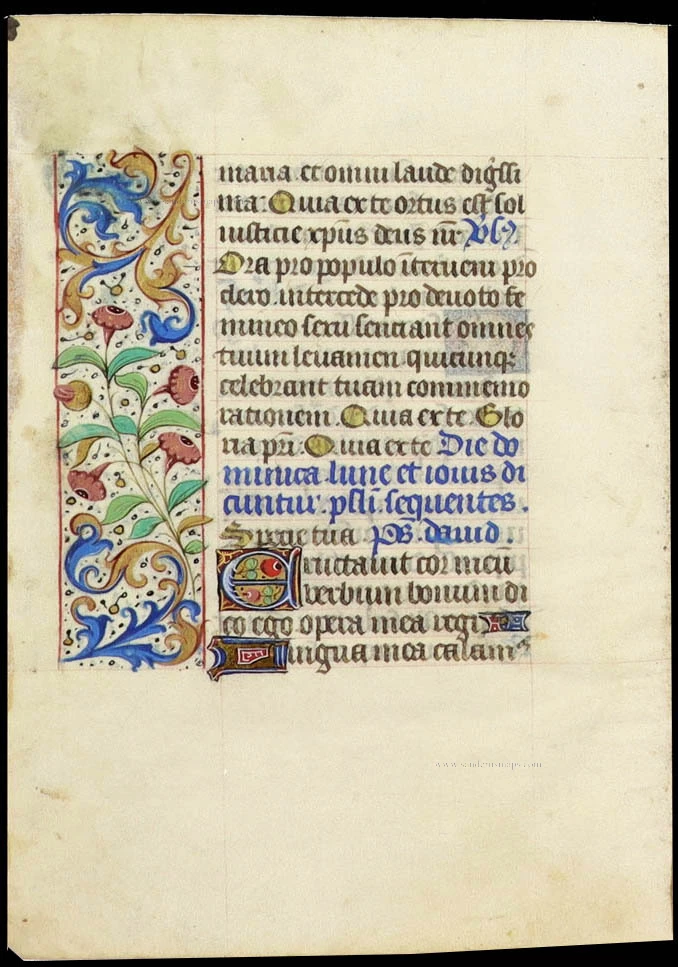 maria et omni laude digissi
ma: Quia ex te ortus est sol
iusticie xpus deus nr̄ Vs
Ora pro populo īterueni pro
clero intercede pro deuoto fe
mineo sexu senciant omnes
tuum leuamen quicunqz
celebrant tuam commemo
rationem. Quia ex te. Glo
ria pri. Quia ex te Die do
minica lune et iouis di
cuntur psli sequentes.
Specie tua ps. dauid.
Eructauit cor meū
verbum bonum di
co ego opera mea regi
Lingua mea calamus
www.sanderusmaps.com